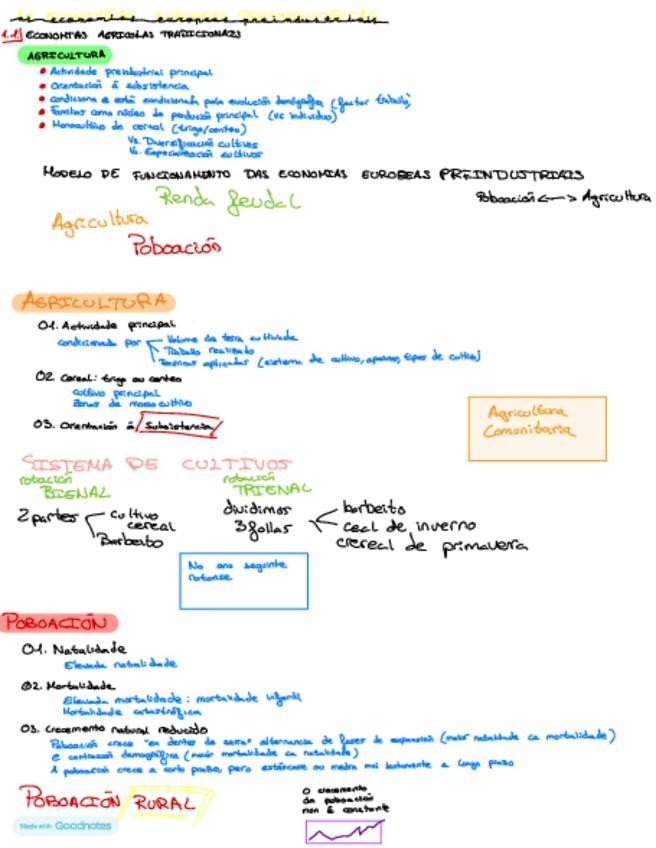 as economías europeas preindustriais
1.1 ECONOMÍAS AGRÍCOLAS TRADICIONAIS
AGRICULTURA
Actividade preindustrial principal
Orientación á subsistencia
condiciona e está condicionada pola evolución demográfica (factor traballo)
Familias como núcleo de produción principal (vs individuo)
Monocultivo de cereal (trigo/centeo)
Vs. Diversificación cultivos
Vs. Especialización cultivos
MODELO DE FUNCIONAMENTO DAS ECONOMÍAS EUROPEAS PREINDUSTRIAIS
Renda feudal
Poboación <--> Agricultura
Agricultura
Poboación
AGRICULTURA
01. Actividade principal
condicionada por
Volume da terra cultivada
Traballo realizado
Técnicas aplicadas (sistema de cultivo, apeiros, tipos de cultivo)
02 Cereal: trigo ou centeo
cultivo principal
Zonas de monocultivo
03. Orientación á Subsistencia
Agricultura
Comunitaria
SISTEMA DE CULTIVOS
rotación
BIENAL
rotación
TRIENAL
2 partes
cultivo
cereal
Barbeito
dividimos
3 follas
barbeito
ceal de inverno
crereal de primavera
No ano seguinte
rotanse
POBOACIÓN
01. Natalidade
Elevada natalidade
02. Mortalidade
Elevada mortalidade: mortalidade infantil
Mortalidade catastrófica
03. Crecemento natural reducido
Poboación crece "en dentes de serra" alternancia de fases de expansión (maior natalidade ca mortalidade)
e contracción demográfica (maior mortalidade ca natalidade)
A poboación crece a curto prazo, pero estáncase ou medra moi lentamente a longo prazo
POBOACIÓN RURAL
O crecemento
da poboación
non é constante
Made with Goodnotes